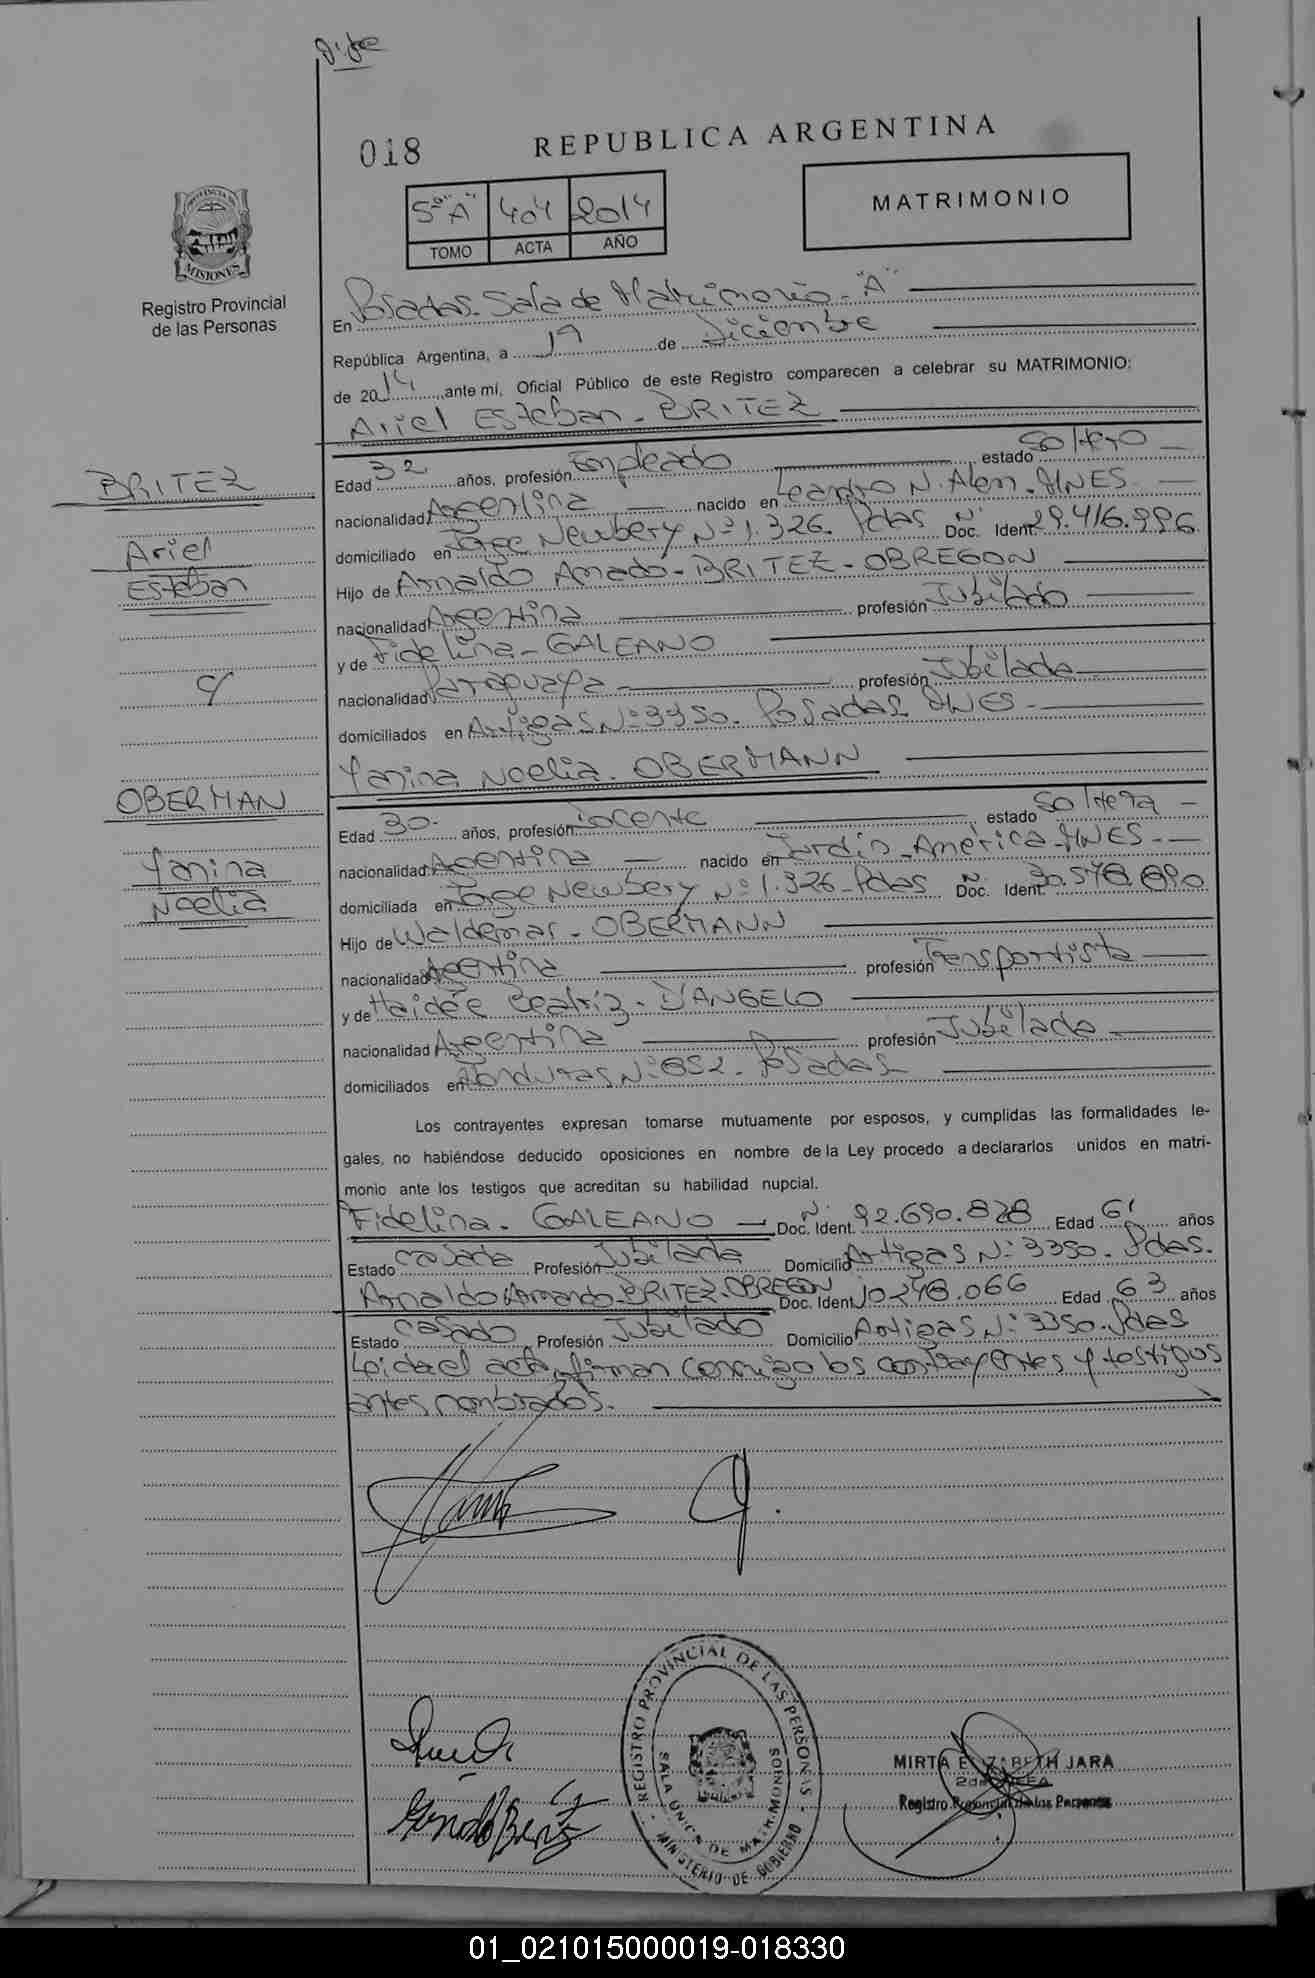 018
REPUBLICA ARGENTINA
MATRIMONIO
5º "A" 404 2014
TOMO ACTA AÑO
PROVINCIA DE MISIONES
Registro Provincial
de las Personas
En Posadas. Sala de Matrimonio - "A"
República Argentina, a 19 de Diciembre
de 2014, ante mi, Oficial Público de este Registro comparecen a celebrar su MATRIMONIO:
Ariel Esteban - BRITEZ
BRITEZ
Ariel
Esteban
c/
OBERMAN
Yanina
Noelia
Edad 32 años, profesión Empleado estado Soltero
nacionalidad Argentina nacido en Leandro N. Alem - MNES.
domiciliado en Jorge Newbery Nº 1.326. Pdas Doc. Ident. Nº 29.416.996
Hijo de Arnaldo Amado - BRITEZ - OBREGON
nacionalidad Argentina profesión Jubilado
y de Fidelina - GALEANO
nacionalidad Paraguaya profesión Jubilada
domiciliados en Artigas Nº 3350. Posadas MNES -
Yanina Noelia. OBERMANN
Edad 30. años, profesión Docente estado Soltera
nacionalidad Argentina nacido en Jardín América - MNES -
domiciliada en Jorge Newbery Nº 1.326 - Pdas Doc. Ident. Nº
Hijo de Waldemar - OBERMANN
nacionalidad Argentina profesión Transportista
y de Haidée Beatriz - D'ANGELO
nacionalidad Argentina profesión Jubilada
domiciliados en Honduras Nº 852 - Posadas
Los contrayentes expresan tomarse mutuamente por esposos, y cumplidas las formalidades le-
gales, no habiéndose deducido oposiciones en nombre de la Ley procedo a declararlos unidos en matri-
monio ante los testigos que acreditan su habilidad nupcial.
Fidelina. GALEANO Doc. Ident. Nº 92.690.828 Edad 61 años
Estado casada Profesión Jubilada Domicilio Artigas Nº 3350. Pdas.
Arnaldo Armando BRITEZ - OBREGON Doc. Ident. 10.248.066 Edad 63 años
Estado casado Profesión Jubilado Domicilio Artigas Nº 3350. Pdas
Leida el acta, firman conmigo los contrayentes y testigos
antes nombrados.
REGISTRO PROVINCIAL DE LAS PERSONAS - MINISTERIO DE GOBIERNO
SALA UNICA DE MATRIMONIOS
MIRTA ELIZABETH JARA
Registro Provincial de las Personas
01_021015000019-018330